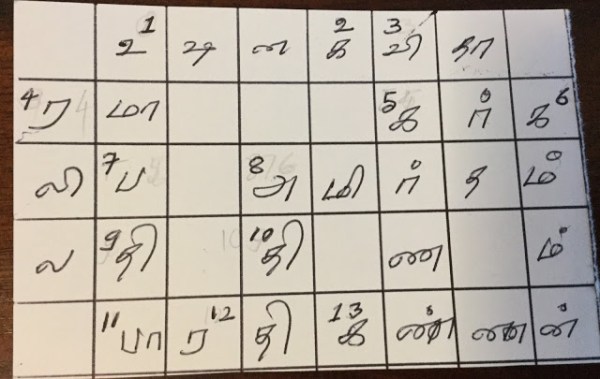 1 2 3
உ டி ன க வி தா
4 ர மா 5 க ர் க 6
லி 7 ப 8 அ மி ர் த ம்
ல 9 தி 10 தி ண ம்
11 பா ர 12 தி 13 க ண் ண ன்